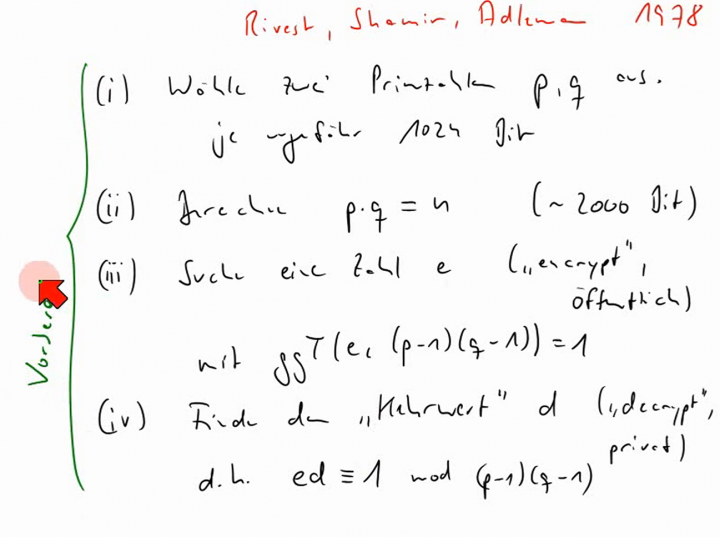 Rivest, Shamir, Adleman 1978
(i) Wähle zwei Primzahlen p, q aus.
je ungefähr 1024 Bit
(ii) Berechne p·q = n (~ 2000 Bit)
(iii) Suche eine Zahl e („encrypt",
öffentlich)
mit ggT(e, (p-1)(q-1)) = 1
(iv) Finde den „Kehrwert" d („decrypt",
privat)
d.h. ed ≡ 1 mod (p-1)(q-1)